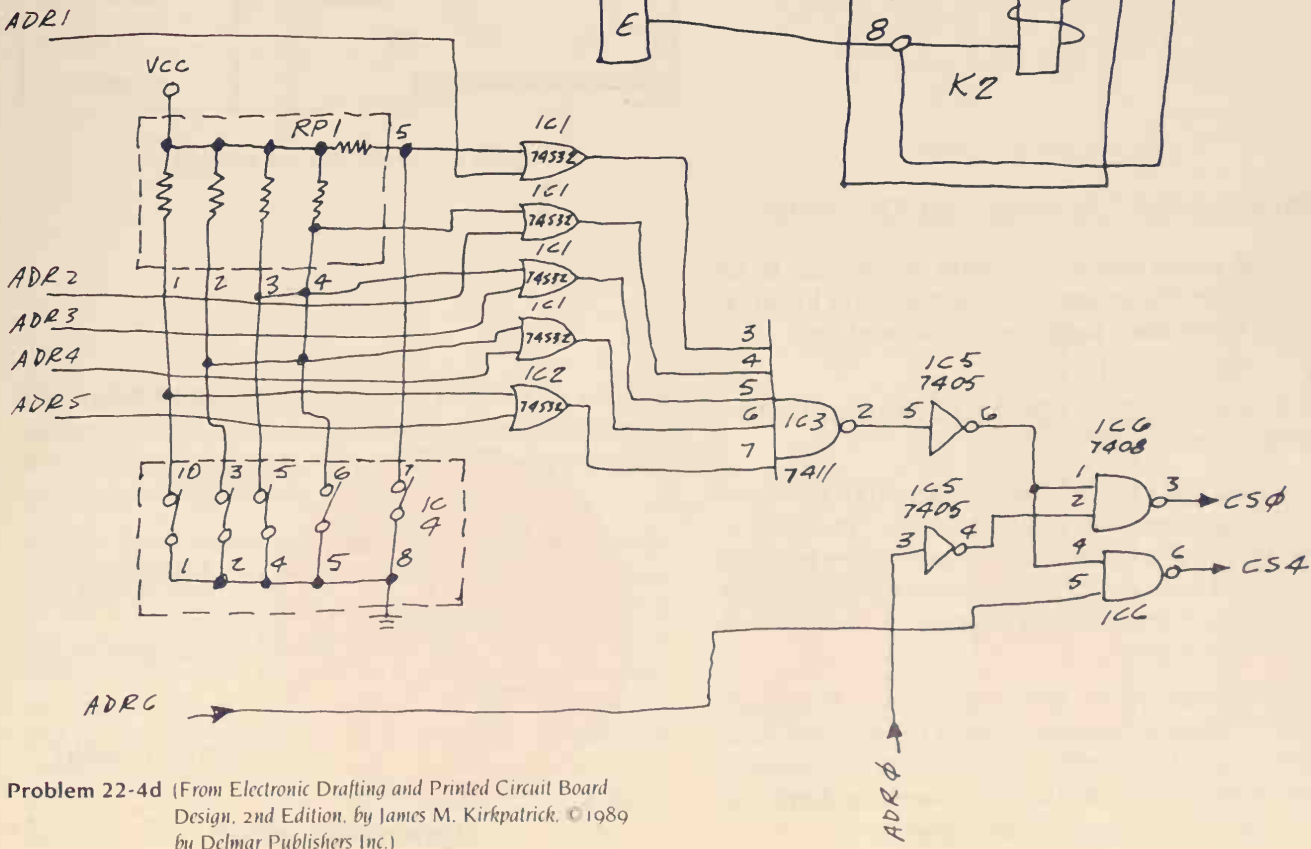 ADR1
E
8
K2
VCC
RP1
5
IC1
74S32
IC1
74S32
IC1
74S32
IC1
74S32
IC2
74S32
1 2 3 4
ADR2
ADR3
ADR4
ADR5
3
4
5
6
7
IC3
7411
2
5
IC5
7405
6
IC5
7405
3
4
IC6
7408
1
2
3
CSØ
4
5
6
CS4
IC6
10 3 5 6 7
IC
4
1 2 4 5 8
ADR6
ADRØ
Problem 22-4d (From Electronic Drafting and Printed Circuit Board
Design, 2nd Edition, by James M. Kirkpatrick, ©1989
by Delmar Publishers Inc.)